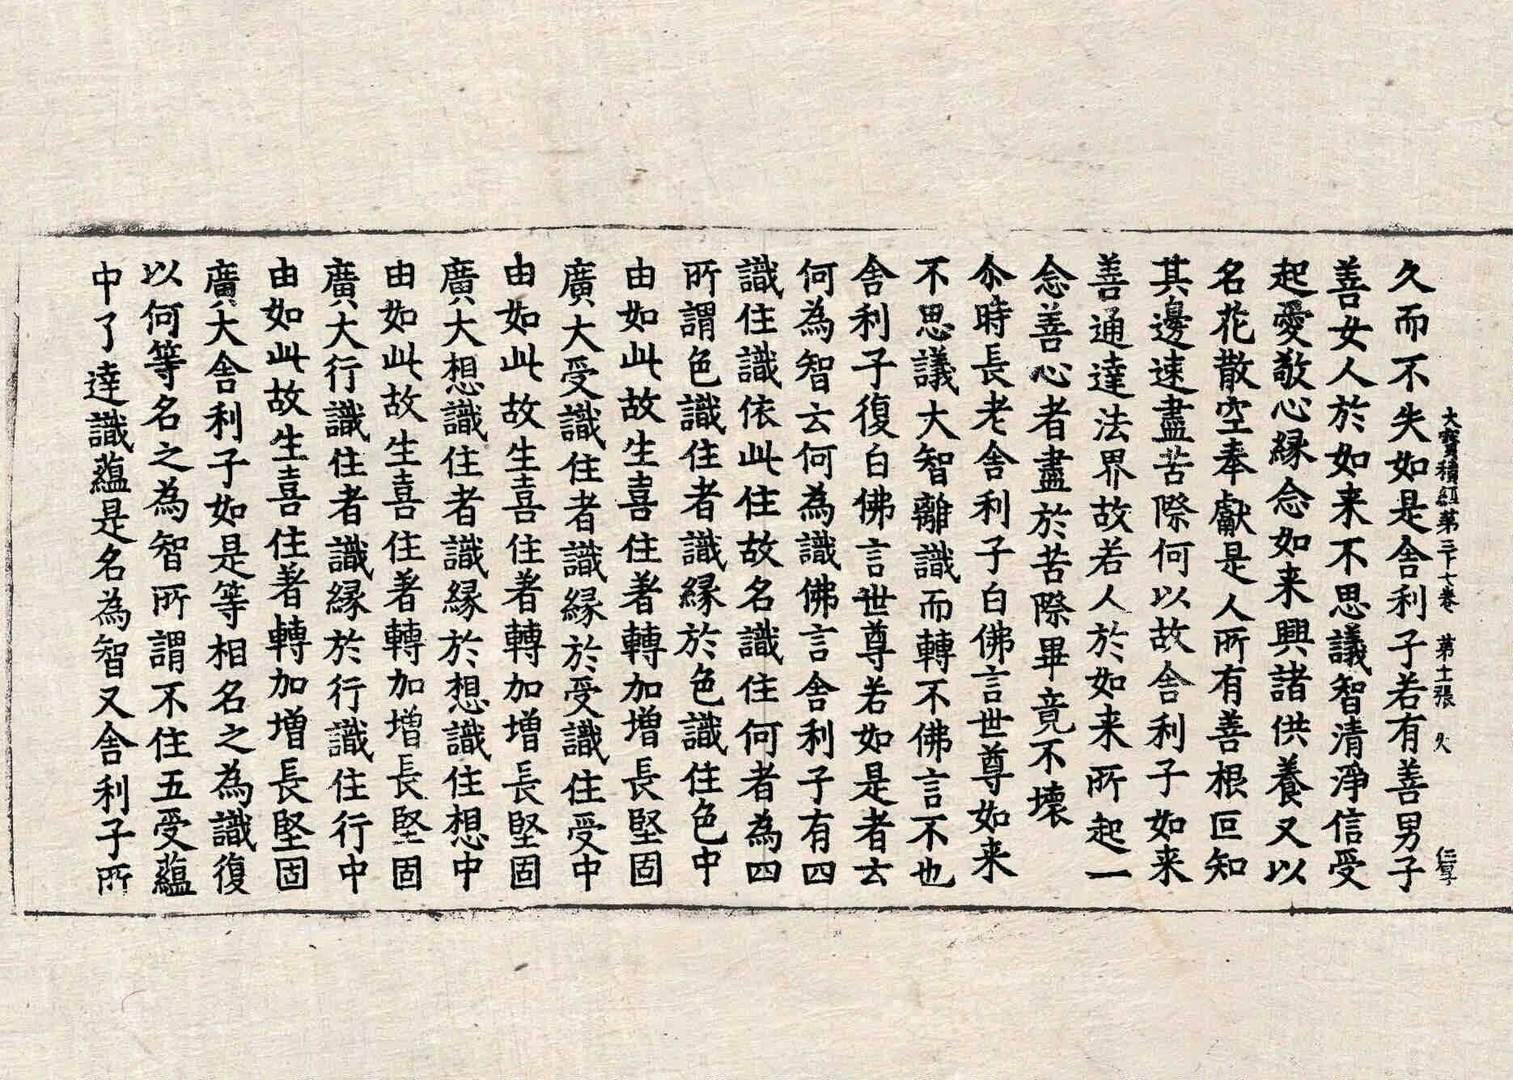 大寳積經第三十七卷 第十一張 火
久而不失如是舍利子若有善男子
善女人於如来不思議智清淨信受
起愛敬心縁念如来興諸供養又以
名花散空奉獻是人所有善根叵知
其邊速盡苦際何以故舍利子如来
善通達法界故若人於如来所起一
念善心者盡於苦際畢竟不壞
尒時長老舍利子白佛言世尊如来
不思議大智離識而轉不佛言不也
舍利子復白佛言世尊若如是者云
何為智云何為識佛言舍利子有四
識住識依此住故名識住何者為四
所謂色識住者識縁於色識住色中
由如此故生喜住著轉加增長堅固
廣大受識住者識縁於受識住受中
由如此故生喜住著轉加增長堅固
廣大想識住者識縁於想識住想中
由如此故生喜住著轉加增長堅固
廣大行識住者識縁於行識住行中
由如此故生喜住著轉加增長堅固
廣大舍利子如是等相名之為識復
以何等名之為智所謂不住五受蘊
中了達識蘊是名為智又舍利子所